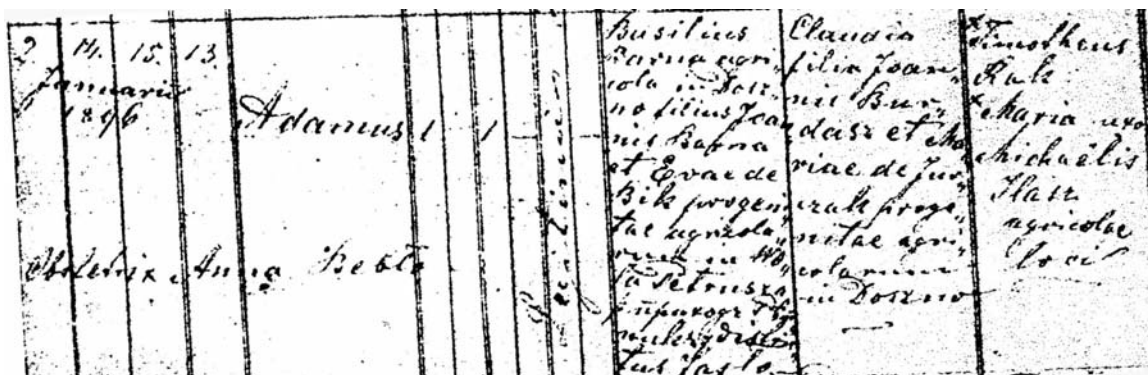 2 14. 15. 13.
Januarii
1896
Adamus 1 1
Obstetrix Anna Bebło
Legitimi
Basilius
Barna agri„
cola in Dosz„
no filius Joan
nis Barna
et Evae de
Bik progeni
tae agricola„
rum in Wo„
la Petrusza
tus Jasło
Claudia
filia Joan„
nis Bur„
dasz et Ma
riae de Jur„
czak proge„
nitae agri„
colarum
in Doszno
Timotheus
Rak
Maria uxor
Michaëlis
Hasz
agricolae
loci